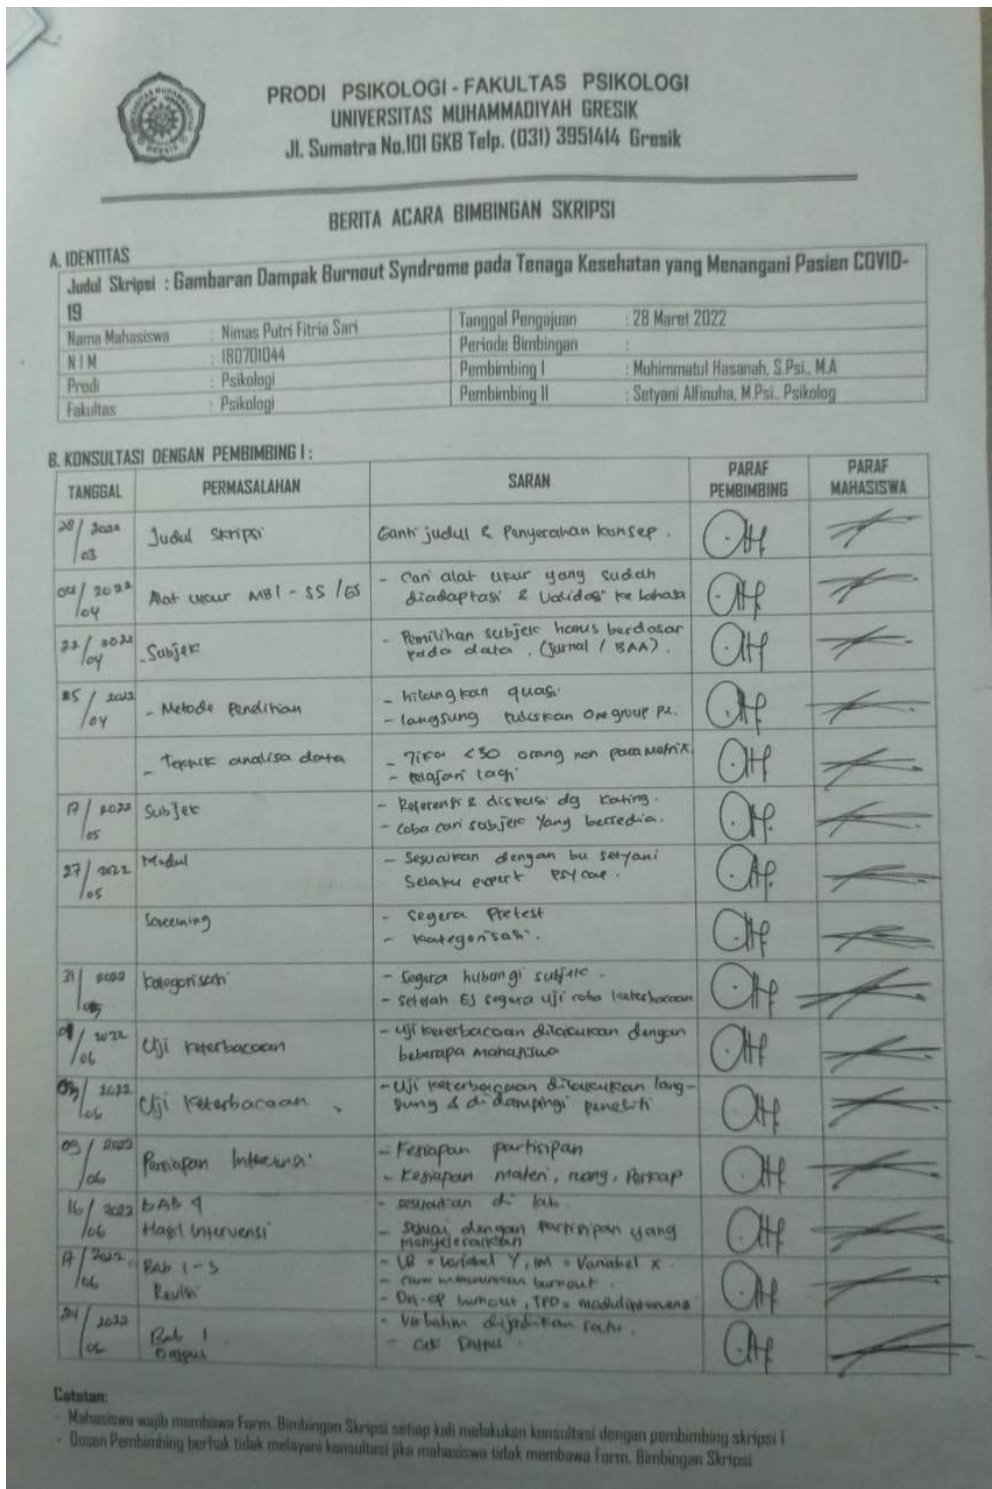 PRODI PSIKOLOGI - FAKULTAS PSIKOLOGI
UNIVERSITAS MUHAMMADIYAH GRESIK
Jl. Sumatra No.101 GKB Telp. (031) 3951414 Gresik
BERITA ACARA BIMBINGAN SKRIPSI
A. IDENTITAS
Judul Skripsi : Gambaran Dampak Burnout Syndrome pada Tenaga Kesehatan yang Menangani Pasien COVID-
19
Nama Mahasiswa : Nimas Putri Fitria Sari Tanggal Pengajuan : 28 Maret 2022
N I M : 180701044 Periode Bimbingan :
Prodi : Psikologi Pembimbing I : Muhimmatul Hasanah, S.Psi., M.A
Fakultas : Psikologi Pembimbing II : Setyani Alfinuha, M.Psi., Psikolog
B. KONSULTASI DENGAN PEMBIMBING I :
TANGGAL PERMASALAHAN SARAN PARAF PEMBIMBING PARAF MAHASISWA
28/03 2022 Judul Skripsi Ganti judul & Penyerahan konsep.
04/04 2022 Alat ukur MBI - SS / ES - Cari alat ukur yang sudah
diadaptasi & Validasi ke bahasa
22/04 2022 - Subjek - Pemilihan subjek harus berdasar
pada data. (Jurnal / BAA).
25/04 2022 - Metode Penelitian - hilangkan quasi
- langsung tuliskan One group
- Teknik analisa data - Jika <30 orang non parametrik
- pelajari lagi
17/05 2022 Subjek - Referensi & diskusi dg kating.
- Coba cari subjek yang bersedia.
27/05 2022 Modul - Sesuaikan dengan bu setyani
Selaku expert psycap.
Screening - Segera Pretest
- kategorisasi.
31/05 2022 Kategorisasi - Segera hubungi subjek.
- Setelah EJ segera uji coba keterbacaan
/06 2022 Uji keterbacaan - Uji keterbacaan dilakukan dengan
beberapa mahasiswa
/06 2022 Uji Keterbacaan - Uji keterbacaan dilakukan lang-
sung & didampingi peneliti
09/06 2022 Persiapan Intervensi - Kesiapan partisipan
- Kesiapan materi, ruang, Perkap
16/06 2022 BAB 4 - sesuaikan di lab.
Hasil Intervensi - Sesuai dengan Partisipan yang
menyelesaikan
17/06 2022 Bab 1-3 - LB = Variabel Y, IM = Variabel X.
Revisi - Cara menurunkan burnout.
- burnout, = modul
24/06 2022 Bab 1 - Verbatim dijadikan satu.
Dapus - Cek Dapus.
Catatan:
- Mahasiswa wajib membawa Form. Bimbingan Skripsi setiap kali melakukan konsultasi dengan pembimbing skripsi I
- Dosen Pembimbing berhak tidak melayani konsultasi jika mahasiswa tidak membawa Form. Bimbingan Skripsi